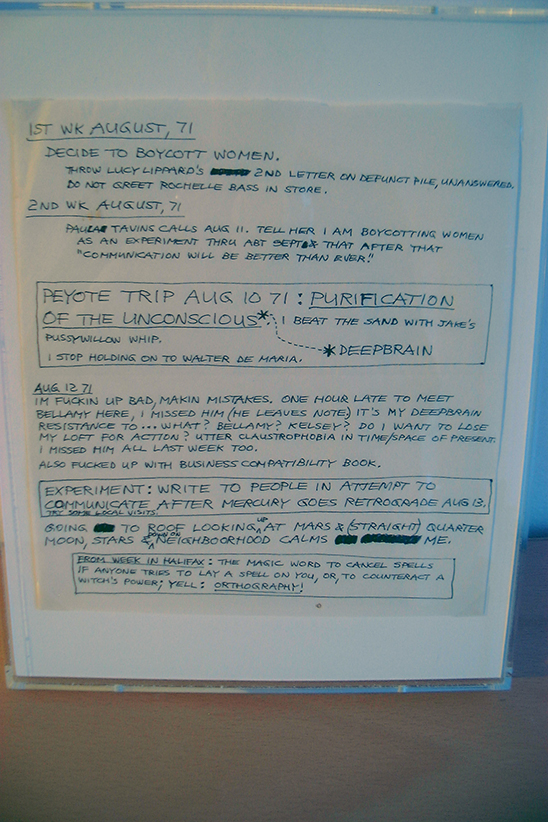 1ST WK AUGUST, 71
DECIDE TO BOYCOTT WOMEN.
THROW LUCY LIPPARD'S 2ND LETTER ON DEFUNCT PILE, UNANSWERED.
DO NOT GREET ROCHELLE BASS IN STORE.
2ND WK AUGUST, 71
PAULA TAVINS CALLS AUG 11. TELL HER I AM BOYCOTTING WOMEN
AS AN EXPERIMENT THRU ABT SEPT & THAT AFTER THAT
"COMMUNICATION WILL BE BETTER THAN EVER!"
PEYOTE TRIP AUG 10 71 : PURIFICATION
OF THE UNCONSCIOUS*. I BEAT THE SAND WITH JAKE'S
PUSSYWILLOW WHIP.
* DEEPBRAIN
I STOP HOLDING ON TO WALTER DE MARIA.
AUG 12 71
IM FUCKIN UP BAD, MAKIN MISTAKES. ONE HOUR LATE TO MEET
BELLAMY HERE, I MISSED HIM (HE LEAVES NOTE) IT'S MY DEEPBRAIN
RESISTANCE TO... WHAT? BELLAMY? KELSEY? DO I WANT TO LOSE
MY LOFT FOR ACTION? UTTER CLAUSTROPHOBIA IN TIME/SPACE OF PRESENT.
I MISSED HIM ALL LAST WEEK TOO.
ALSO FUCKED UP WITH BUSINESS COMPATIBILITY BOOK.
EXPERIMENT: WRITE TO PEOPLE IN ATTEMPT TO
COMMUNICATE AFTER MERCURY GOES RETROGRADE AUG 13.
TRY SOME LOCAL VISITS.
GOING TO ROOF LOOKING UP AT MARS & (STRAIGHT) QUARTER
MOON, STARS & DOWN ON NEIGHBOORHOOD CALMS ME.
FROM WEEK IN HALIFAX: THE MAGIC WORD TO CANCEL SPELLS
IF ANYONE TRIES TO LAY A SPELL ON YOU, OR, TO COUNTERACT A
WITCH'S POWER; YELL: ORTHOGRAPHY!